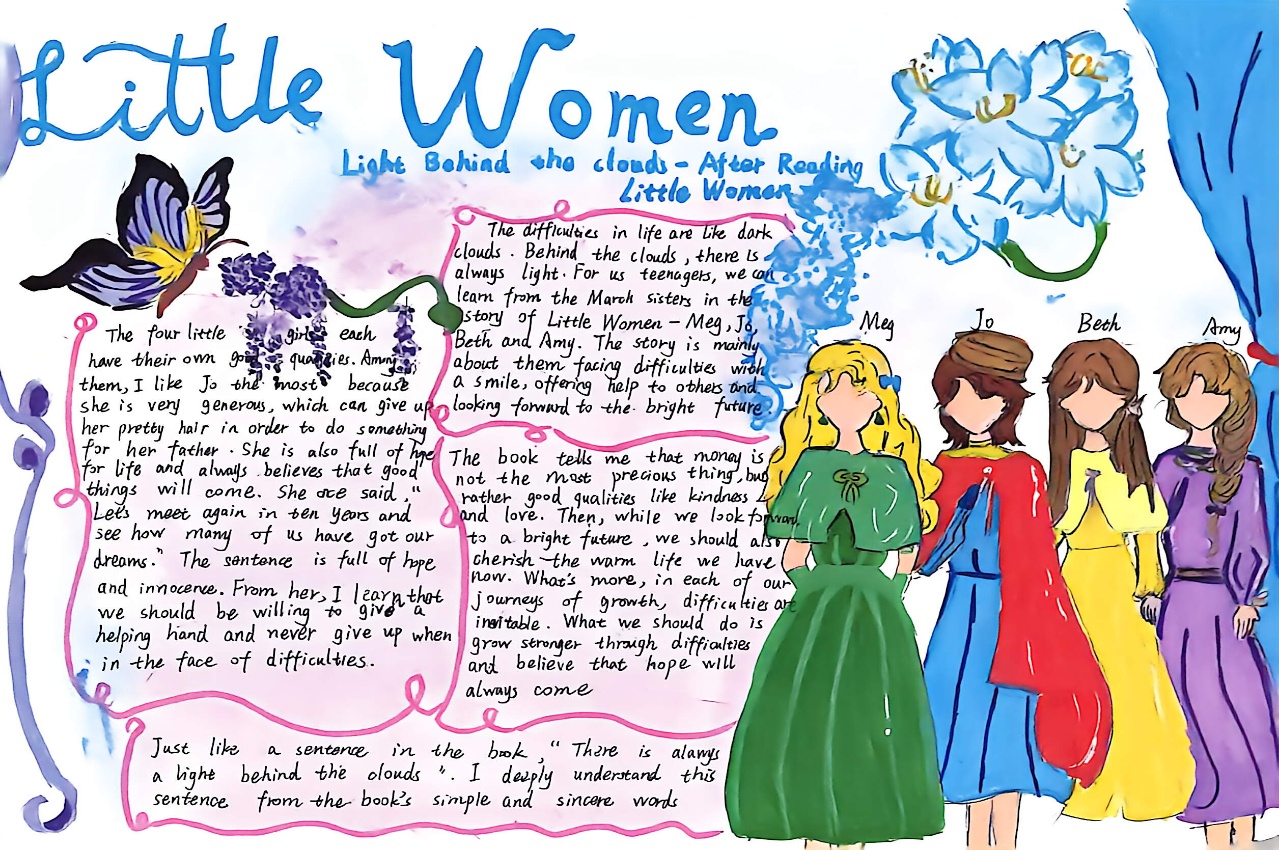 Little Women
Light Behind the clouds - After Reading
Little Women
The difficulties in life are like dark
clouds. Behind the clouds, there is
always light. For us teenagers, we can
learn from the March sisters in the
story of Little Women - Meg, Jo,
Beth and Amy. The story is mainly
about them facing difficulties with
a smile, offering help to others and
looking forward to the bright future.
The four little girls each
have their own good qualities. Among
them, I like Jo the most because
she is very generous, which can give up
her pretty hair in order to do something
for her father. She is also full of hope
for life and always believes that good
things will come. She once said, "
Let's meet again in ten years and
see how many of us have got our
dreams." The sentence is full of hope
and innocence. From her, I learn that
we should be willing to give a
helping hand and never give up when
in the face of difficulties.
The book tells me that money is
not the most precious thing, but
rather good qualities like kindness
and love. Then, while we look forward
to a bright future, we should also
cherish the warm life we have
now. What's more, in each of our
journeys of growth, difficulties are
. What we should do is
grow stronger through difficulties
and believe that hope will
always come
Just like a sentence in the book, " There is always
a light behind the clouds ". I deeply understand this
sentence from the book's simple and sincere words
Meg
Jo
Beth
Amy